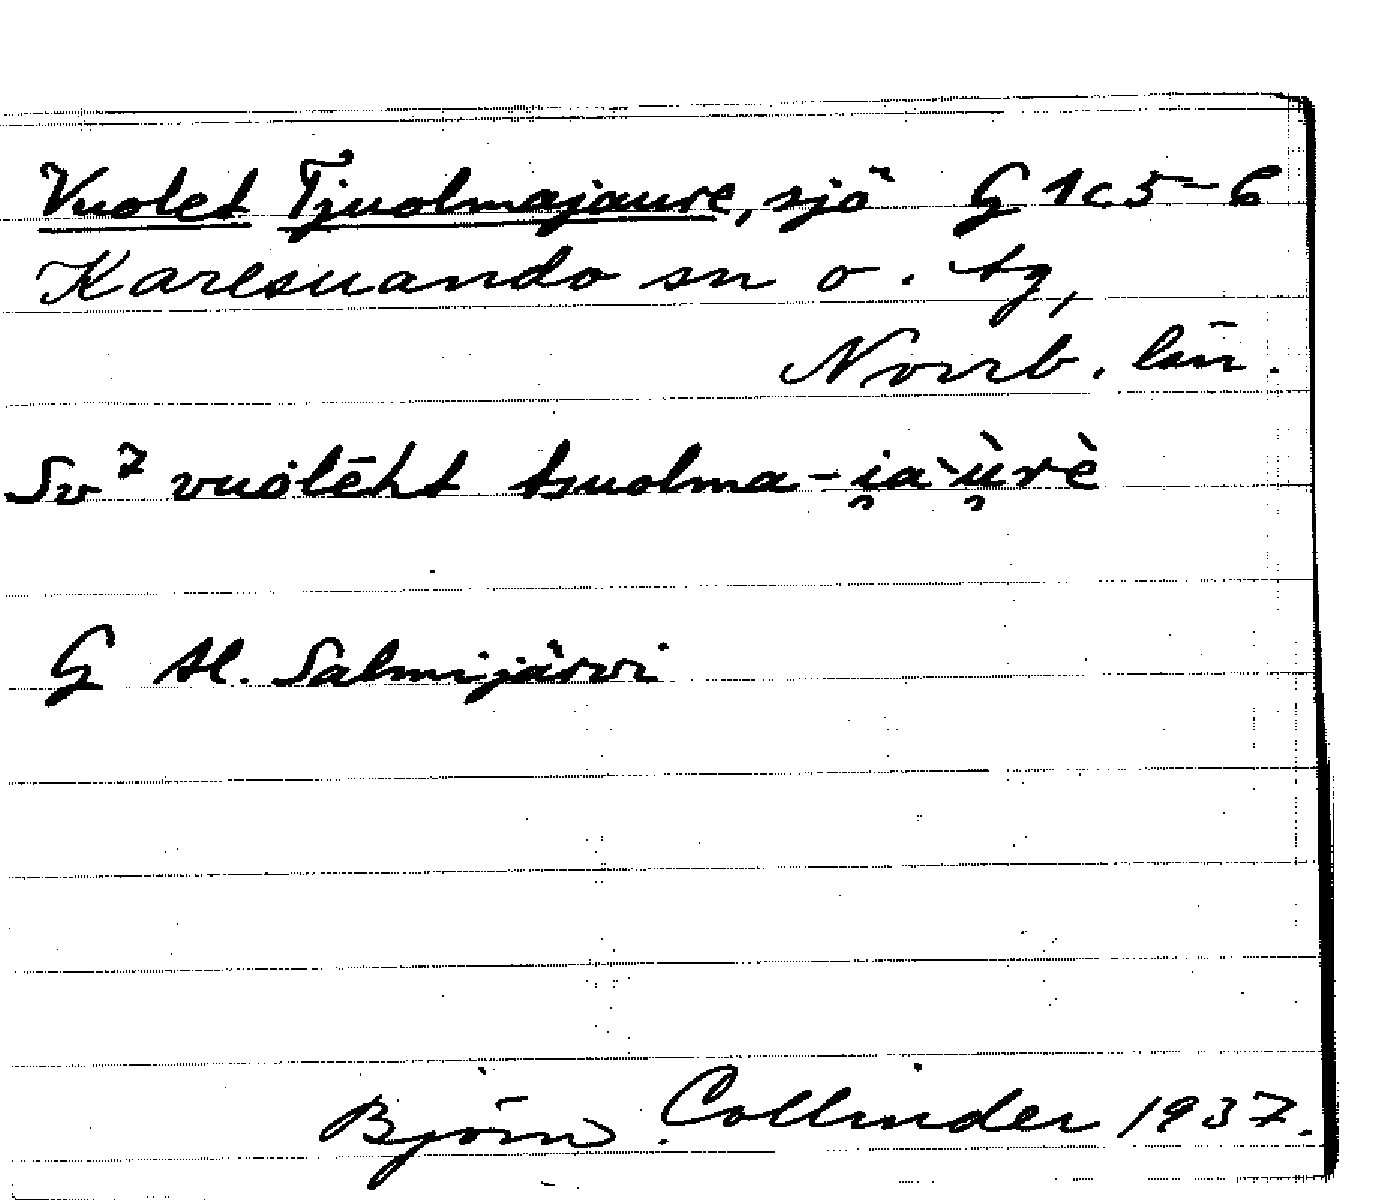 Vuolet Tjuolmajaure, sjö G 1c5-6
Karesuando sn o. tg,
Norrb. län.
Sv⁷ vuolēht tsuolma-i̯a`ù̯rè
G Al. Salmijärvi
Björn Collinder 1937.